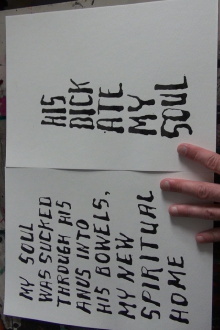 HIS
DICK
ATE
MY
SOUL
MY SOUL
WAS SUCKED
THROUGH HIS
ANUS INTO
HIS BOWELS,
MY NEW
SPIRITUAL
HOME